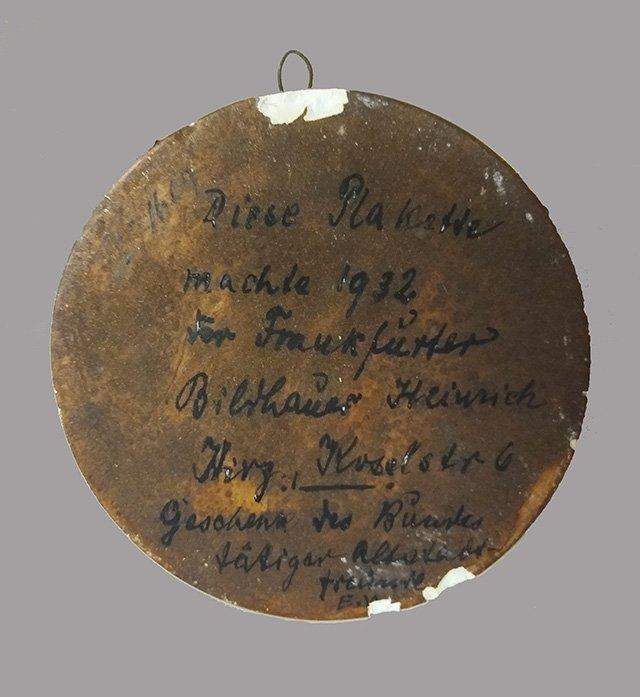 Diese Plakette
machte 1932
der Frankfurter
Bildhauer Heinrich
Hirg., Koselstr 6
Geschenk des Bundes
tätiger Altstadt-
freunde
E.V.